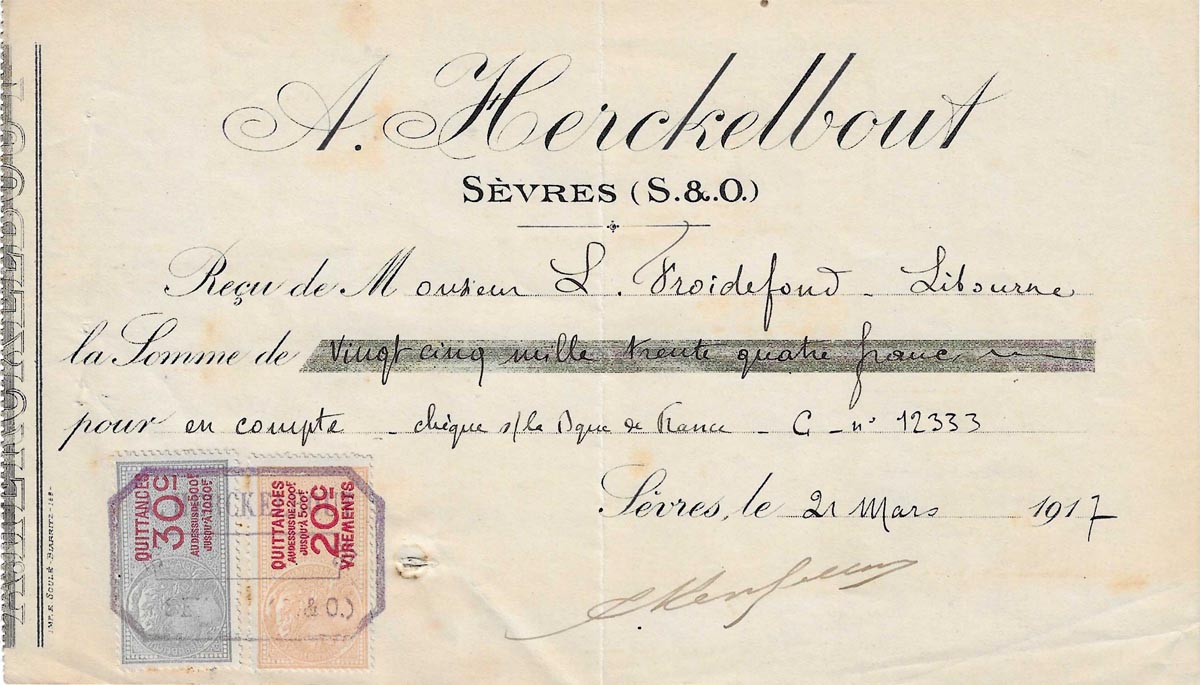 A. Herckelbout
SÈVRES (S.&.O.)
Reçu de Monsieur L. Froidefond - Libourne
la Somme de Vingt cinq mille trente quatre franc
pour en compte - chèque s/la Bque de France - G - n° 12333
Sèvres, le 21 Mars 1917
QUITTANCES
30c
AU DESSUS DE 500F
JUSQU'À 1000F
QUITTANCES
AU DESSUS DE 200F
JUSQU'À 500F
20c
VIREMENTS
IMP. E. SOULÉ - BIARRITZ